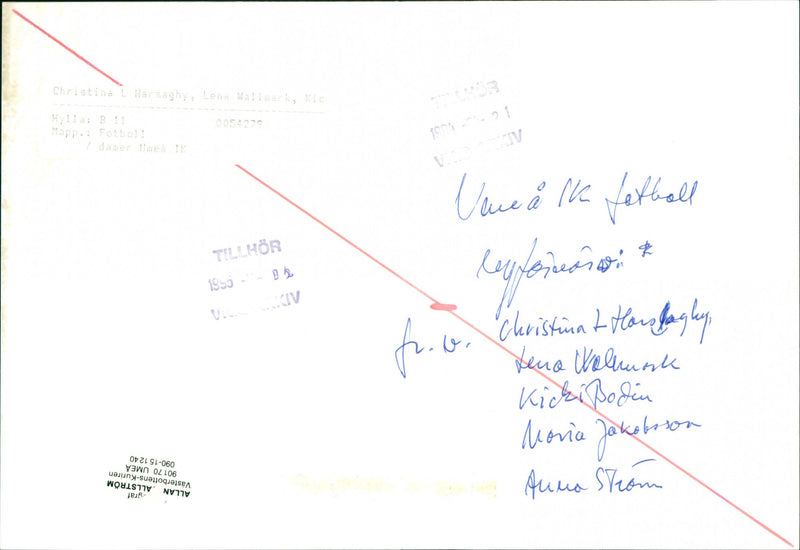 Christina L Harsaghy, Lena Wallmark, Kic
Hylla: B 11 0054279
Mapp.: Fotboll
/ damer Umeå IK
TILLHÖR
TILLHÖR
1985
Umeå IK fotboll
nyförvärv: *
fr. v. Christina L Harsaghy,
Lena Walmark
Kicki Bodin
Maria Jakobsson
Anna Ström
ALLAN ALLSTRÖM
Västerbottens-Kuriren
901 70 UMEÅ
090-15 12 40